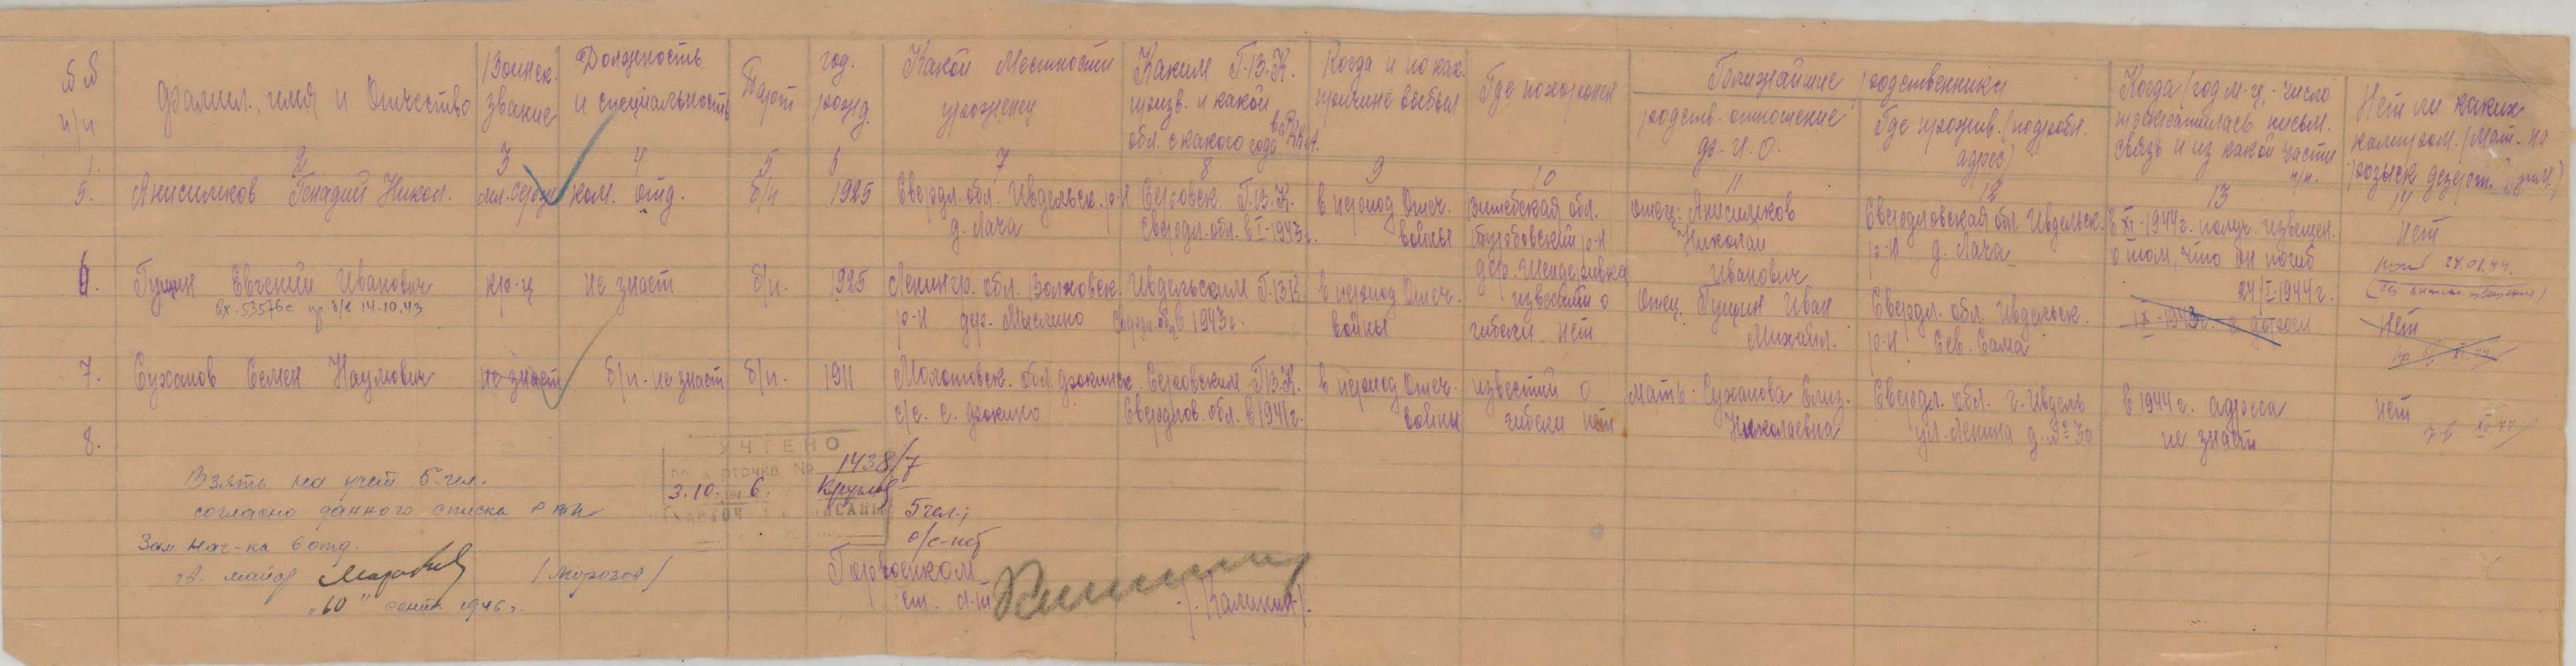 №№ п/п
Фамил., имя и Отчество
Воинск. звание
Должность и специальность
Парт
год. рожд.
Какой Местности уроженец
Каким Г.В.К. призв. и какой обл. с какого года в РККА.
Когда и по как. причине выбыл
Где похоронен
Ближайшие родственники
родств. отношение ф.И.О.
Где прожив. (подробн. адрес)
Когда (год м-ц, число прекратилась письм. связь и из какой части п/п.
Нет ли каких компром. (Мат. на розыск дезерт.
1. 2 3 4 5 6 7 8 9 10 11 12 13 14
5. Анисимков Генадий Никол. мл. серж ком. отд. б/п 1925 Свердл. обл. Ивдельск. р-н Серовск. Г.В.К. в период Отеч. Витебская обл. отец: Анисимков Свердловская обл Ивдельск. в XI-1944г. получ. извещен. Нет
д. Лача Свердл. обл. в I-1943г. войны р-н Николай р-н д. Лача о том, что он погиб
дер. Шендеривка Иванович 24/I-1944г. погиб 24.01.44.
6. Гущин Евгений Иванович кр-ц не знает б/п. 1925 Ленингр. обл. Волховск. Ивдельским Г.В.К. в период Отеч. известий о Отец. Гущин Иван Свердл. обл. Ивдельск. IX-1943г. Нет
вх. 53576с 14.10.43 р-н дер. Мыслино Свердл. обл в 1943г. войны гибели нет Михайл. р-н Сев. Сама
7. Суханов Семен Наумович не знает б/п. не знает б/п. 1911 Молотовск. обл. Фокинск. Серовским Г.В.К. в период Отеч. известий о Мать: Суханова Елиз. Свердл. обл. г. Ивдель в 1944г. адреса нет
с/с. с. Фокино Свердлов. обл. в 1941г. войны гибели нет Николаевна ул. Ленина д. № 30 не знает
8.
Взять на учет 5 чел.
согласно данного списка
Зам нач-ка 6 отд.
гв. майор (Морозов)
"10" сент. 1946г.
УЧТЕНО
1438/7
3.10. 6.
5 чел.;
о/с-нет
Горвоенком
ст. л-т /Калинин/.